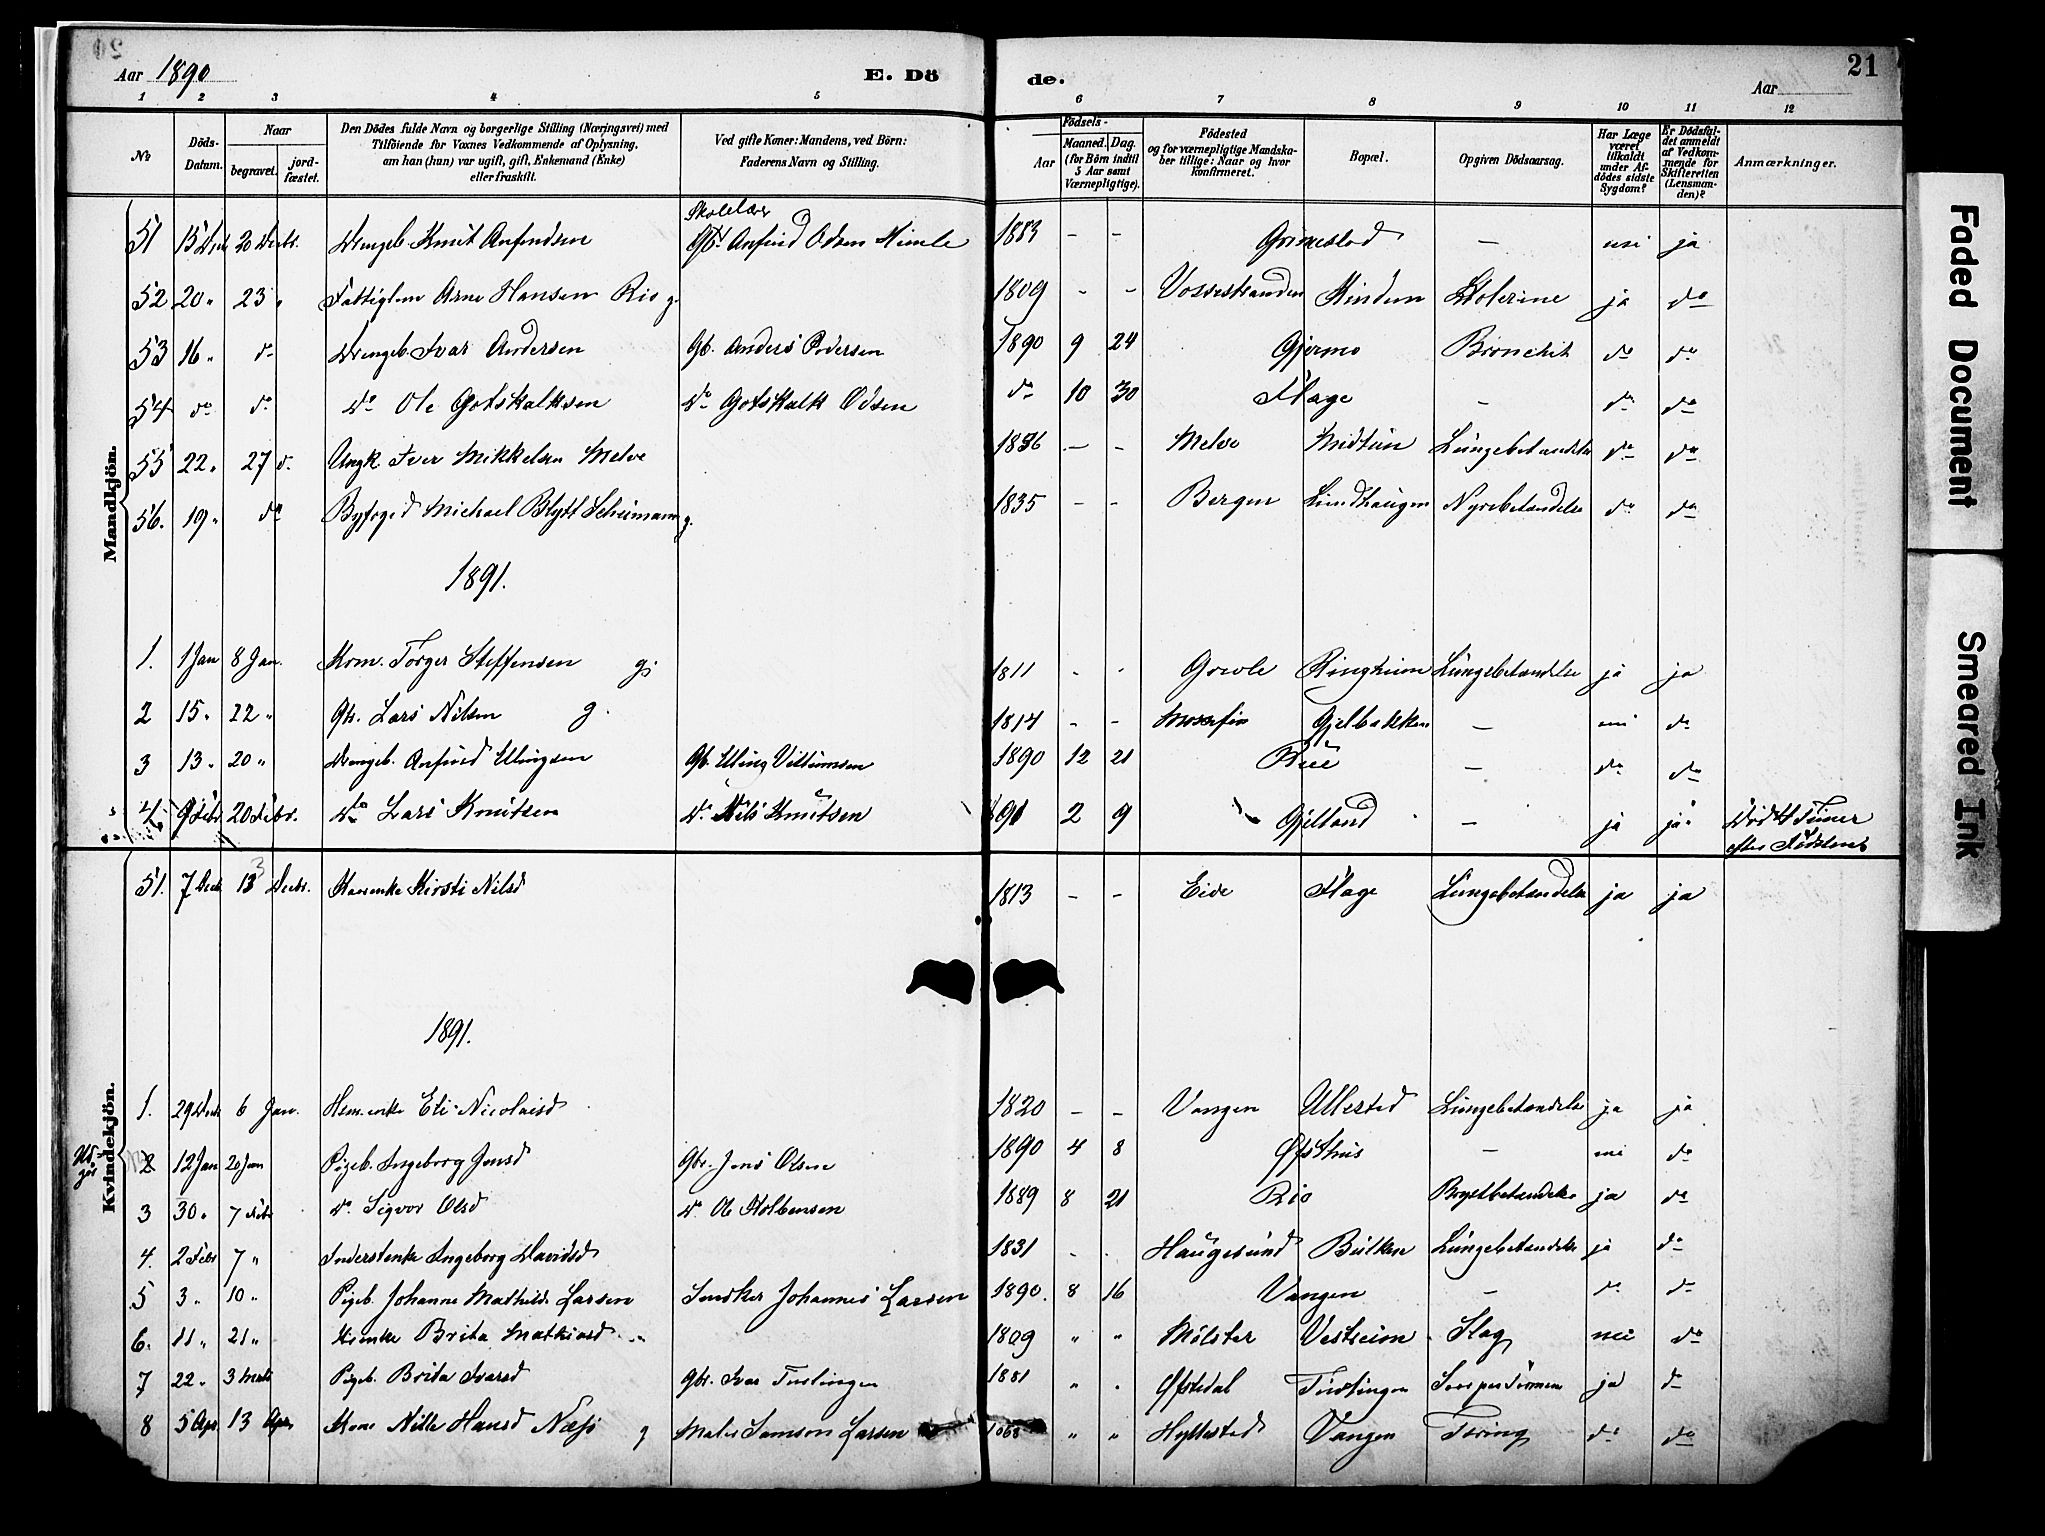 Aar 1890 E. Dö de. Aar 21
1 2 3 4 5 6 7 8 9 10 11 12
№ Döds-Datum. Naar begravet. jordfæstet. Den Dödes fulde Navn og borgerlige Stilling (Næringsvei) med Tilföiende for Voxnes Vedkommende af Oplysning, om han (hun) var ugift, gift, Enkemand (Enke) eller fraskilt. Ved gifte Koner: Mandens, ved Börn: Faderens Navn og Stilling. Födsels- Aar Maaned. Dag. (for Börn indtil 5 Aar samt Værnepligtige). Födested og for værnepligtige Mandskaber tillige: Naar og hvor konfirmeret. Bopæl. Opgiven Dödsaarsag. Har Læge været tilkaldt under Afdödes sidste Sygdom? Er Dödsfaldet anmeldt af Vedkommende for Skifteretten (Lensmanden)? Anmærkninger.
Mandkjön.
Skolelærer
51 15 Decb 20 Decbr. Drengeb. Knut Anfindsen Gb. Anfind Odsen Himle 1883 – – Grimestad – nei ja
52 20 " 23 " Fattiglem Arne Hansen Rio g. 1809 – – Vossestranden Kindem Kolerine ja do
53 16 " do Drengeb. Ivar Andersen Gb. Anders Pedersen 1890 9 24 Gjermo Bronchit do do
54 do do do Ole Gotskalksen do Gotskalk Odsen do 10 30 Flage – do do
55 22 " 27 d. Ungk. Iver Mikkelsen Melve 1836 – – Melve Midtun Lungebetændelse do do
56. 19 " do Byfoged Michael Blytt Schumann g. 1835 – – Bergen Lundhaugen Nyrebetændelse do do
1891.
1. 1 Jan 8 Jan. Kom. Torger Steffensen g. 1811 - - Grovle Ringheim Lungebetændelse ja ja
2 15 " 22 " Gb. Lars Nilsen g. 1814 - - Gjelbakken – nei do
3 13 " 20 " Drengeb. Anfind Ellingsen Gb. Elling 1890 12 21 Rue – do do
4. 9 Febr 20 Febr. do Lars Knutsen do Nils Knutsen 1891 2 9 Gjelland – ja ja Död 4 Timer
efter Födselen
Kvindekjön.
51. 7 Decb 13 Decbr. Kaarenke Kirsti Nilsd 1813 – – Eide Flage Lungebetændelse ja ja
1891.
1. 29 Decb 6 Jan. Eli Nicolaisd 1820 – – Vangen Ullestad Lungebetændelse ja ja
2 12 Jan 20 Jan Pigeb. Ingeborg Jensd Gbr. Jens Olsen 1890 4 8 Øfsthus – nei do
3 30 " 7 Febr do Sigvor Olsd do Ole Kolbensen 1889 8 21 Rio Brystbetændelse ja do
4. 2 Febr 7 " Inderstenke Ingeborg Davidsd 1831 - - Haugesund Bulken Lungebetændelse ja do
5 3 " 10 " Pigeb. Johanne Mathilde Larsen Snedker Johannes Larsen 1890. 8 16 Vangen – do do
6. 11 " 21 " Brita Mathiasd 1809 " " Mölster Vestreim Slag nei do
7 22 " 3 Marts Pigeb. Brita Ivarsd Gbr. Ivar 1881 " " Øfstedal ja do
8 5 Apr. 13 Apr. Kone Nille Hansd Næsi g Maler Samson Larsen 1868 " " Hyllestad Vangen Tæring do do
Faded Document
Smeared Ink